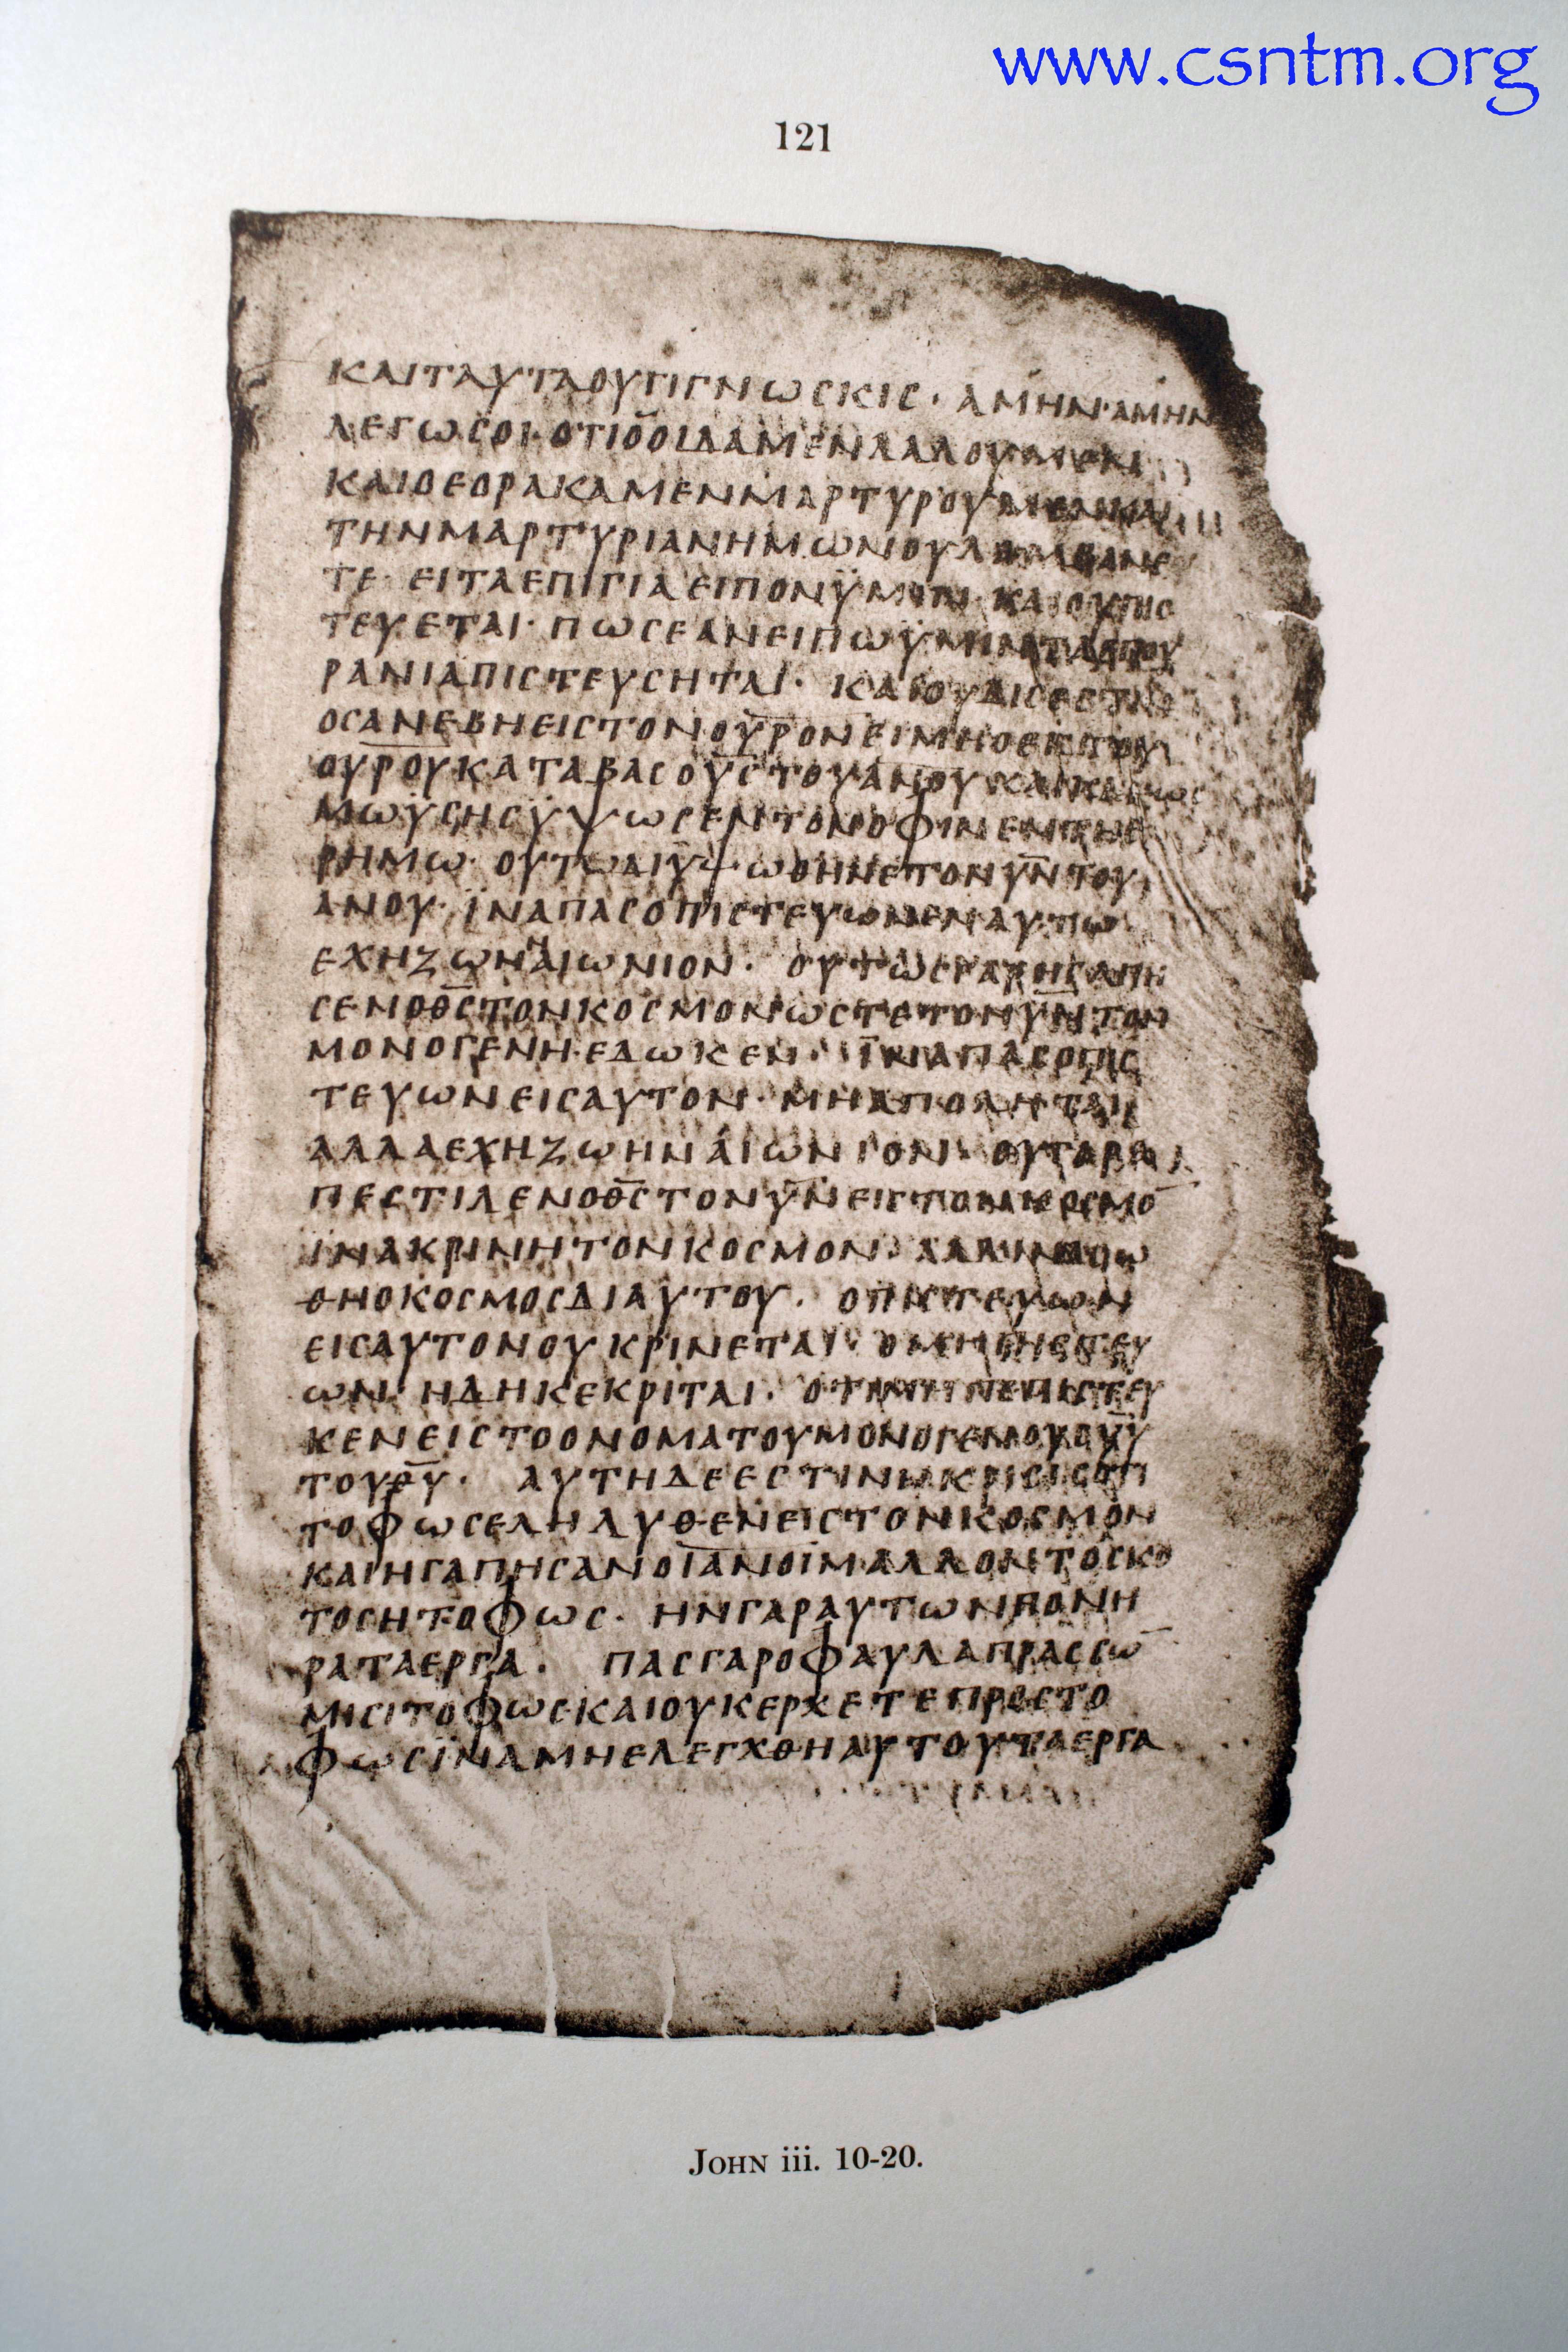 www.csntm.org
121
ΚΑΙΤΑΥΤΑΟΥΓΙΓΝωϹΚΙϹ· ΑΜΗΝ·ΑΜΗΝ
ΛΕΓωϹΟΙ·ΟΤΙΟΟΙΔΑΜΕΝΛΑΛΟΥΜΕΝ
ΚΑΙΟΕΟΡΑΚΑΜΕΝΜΑΡΤΥΡΟΥΜΕΝΚΑΙ
ΤΗΝΜΑΡΤΥΡΙΑΝΗΜωΝΟΥΛΑΜΒΑΝΕ
ΤΕ· ΕΙΤΑΕΠΙΓΙΑΕΙΠΟΝΫΜΙΝ·ΚΑΙΟΥΠΙϹ
ΤΕΥΕΤΑΙ· ΠωϹΕΑΝΕΙΠωΫΜΙΝΤΑΕΠΟΥ
ΡΑΝΙΑΠΙϹΤΕΥϹΗΤΑΙ· ΚΑΙΟΥΔΙϹΕϹΤΙΝ
ΟϹΑΝΕΒΗΕΙϹΤΟΝΟΥ̅Ρ̅ΟΝΕΙΜΗΟΕΚΤΟΥ
ΟΥ̅Ρ̅ΟΥΚΑΤΑΒΑϹΟΥ̅Ϲ̅ΤΟΥΑ̅Ν̅Ο̅Υ̅ΚΑΙΚΑΘωϹ
ΜωΫϹΗϹΫΨωϹΕΝΤΟΝΟΦΙΝΕΝΤΗΕ
ΡΗΜω· ΟΥΤωΔΙΫΨωΘΗΝΕΤΟΝΥ̅Ν̅ΤΟΥ
ΑΝΟΥ· ΪΝΑΠΑϹΟΠΙϹΤΕΥωΝΕΝΑΥΤω
ΕΧΗΖωΗΝΑΙωΝΙΟΝ· ΟΥΤωϹΓΑΡΗΓΑΠΗ
ϹΕΝΟΘ̅Ϲ̅ΤΟΝΚΟϹΜΟΝ·ωϹΤΕΤΟΝΥ̅Ν̅ΤΟΝ
ΜΟΝΟΓΕΝΗ·ΕΔωΚΕΝ· ΪΝΑΠΑϹΟΠΙϹ
ΤΕΥωΝΕΙϹΑΥΤΟΝ·ΜΗΑΠΟΛΗΤΑΙ
ΑΛΛΑΕΧΗΖωΗΝΑΙωΝΙΟΝ· ΟΥΓΑΡΑ
ΠΕϹΤΙΛΕΝΟΘ̅Ϲ̅ΤΟΝΥ̅Ν̅ΕΙϹΤΟΝΚΟϹΜΟ̅
ΙΝΑΚΡΙΝΗΤΟΝΚΟϹΜΟΝ· ΑΛΛΙΝΑϹω
ΘΗΟΚΟϹΜΟϹΔΙΑΥΤΟΥ· ΟΠΙϹΤΕΥωΝ
ΕΙϹΑΥΤΟΝΟΥΚΡΙΝΕΤΑΙ· ΟΜΗΠΙϹΤΕΥ
ωΝ· ΗΔΗΚΕΚΡΙΤΑΙ· ΟΤΙΜΗΠΕΠΙϹΤΕΥ
ΚΕΝΕΙϹΤΟΟΝΟΜΑΤΟΥΜΟΝΟΓΕΝΟΥϹΥ̅Υ̅
ΤΟΥΘ̅Υ̅· ΑΥΤΗΔΕΕϹΤΙΝΗΚΡΙϹΙϹΟΤΙ
ΤΟΦωϹΕΛΗΛΥΘΕΝΕΙϹΤΟΝΚΟϹΜΟΝ
ΚΑΙΗΓΑΠΗϹΑΝΟΙΑ̅Ν̅Ο̅Ι̅ΜΑΛΛΟΝΤΟϹΚΟ
ΤΟϹΗΤΟΦωϹ· ΗΝΓΑΡΑΥΤωΝΠΟΝΗ
ΡΑΤΑΕΡΓΑ· ΠΑϹΓΑΡΟΦΑΥΛΑΠΡΑϹϹω̅
ΜΙϹΙΤΟΦωϹΚΑΙΟΥΚΕΡΧΕΤΕΠΡΟϹΤΟ
ΦωϹΪΝΑΜΗΕΛΕΓΧΘΗΑΥΤΟΥΤΑΕΡΓΑ
JOHN iii. 10-20.